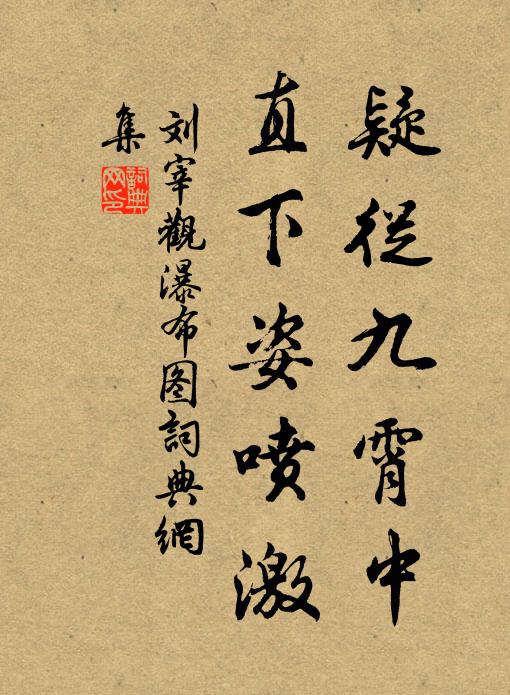 疑從九霄中
直下姿噴激
刘宰觀瀑布图詞典網
集
詞典
网印